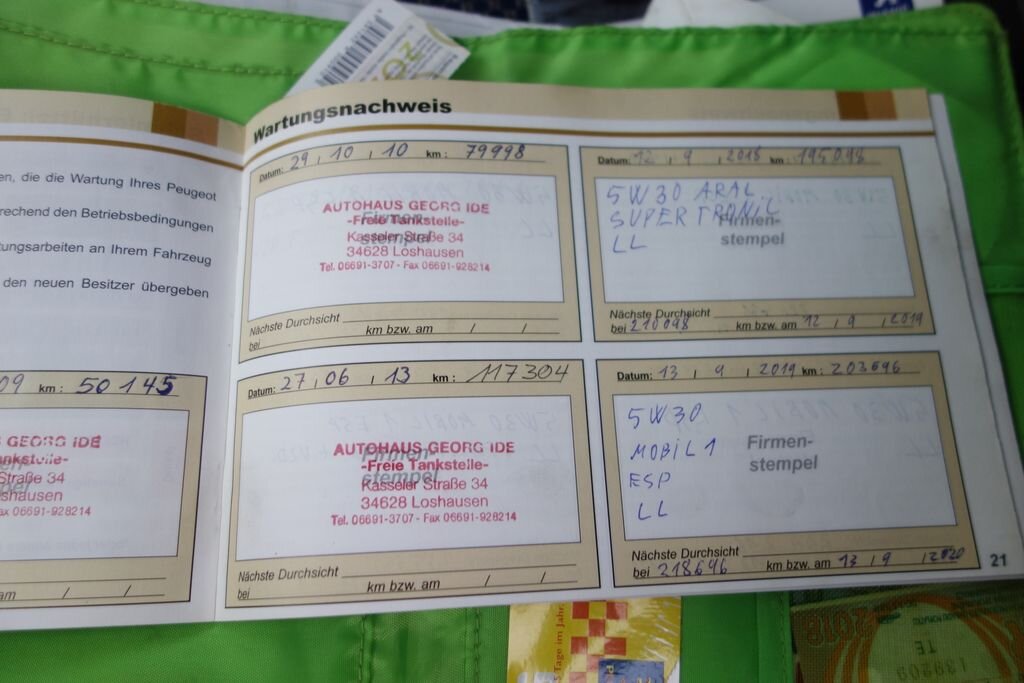 Wartungsnachweis
en, die die Wartung Ihres Peugeot
rechend den Betriebsbedingungen
tungsarbeiten an Ihrem Fahrzeug
den neuen Besitzer übergeben
09 km: 50145
GEORG IDE
ankstelle-
Straße 34
shausen
ax 06691-928214
am / /
Datum: 29, 10, 10 km: 79998
AUTOHAUS GEORG IDE
-Freie Tankstelle-
Kasseler Straße 34
34628 Loshausen
Tel. 06691-3707 - Fax 06691-928214
Firmen-
stempel
Nächste Durchsicht
bei km bzw. am / /
Datum: 27, 06, 13 km: 117304
AUTOHAUS GEORG IDE
-Freie Tankstelle-
Kasseler Straße 34
34628 Loshausen
Tel. 06691-3707 - Fax 06691-928214
Firmen-
stempel
Nächste Durchsicht
bei km bzw. am / /
Datum: 12, 9, 2018 km: 195098
5W30 ARAL
SUPER TRONIC
LL
Firmen-
stempel
Nächste Durchsicht
bei 210098 km bzw. am 12, 9, 2019
Datum: 13, 9, 2019 km: 203696
5W30
MOBIL 1
ESP
LL
Firmen-
stempel
Nächste Durchsicht
bei 218696 km bzw. am 13, 9, 2020
21
Tage im Jahr.
2018
TE
139209